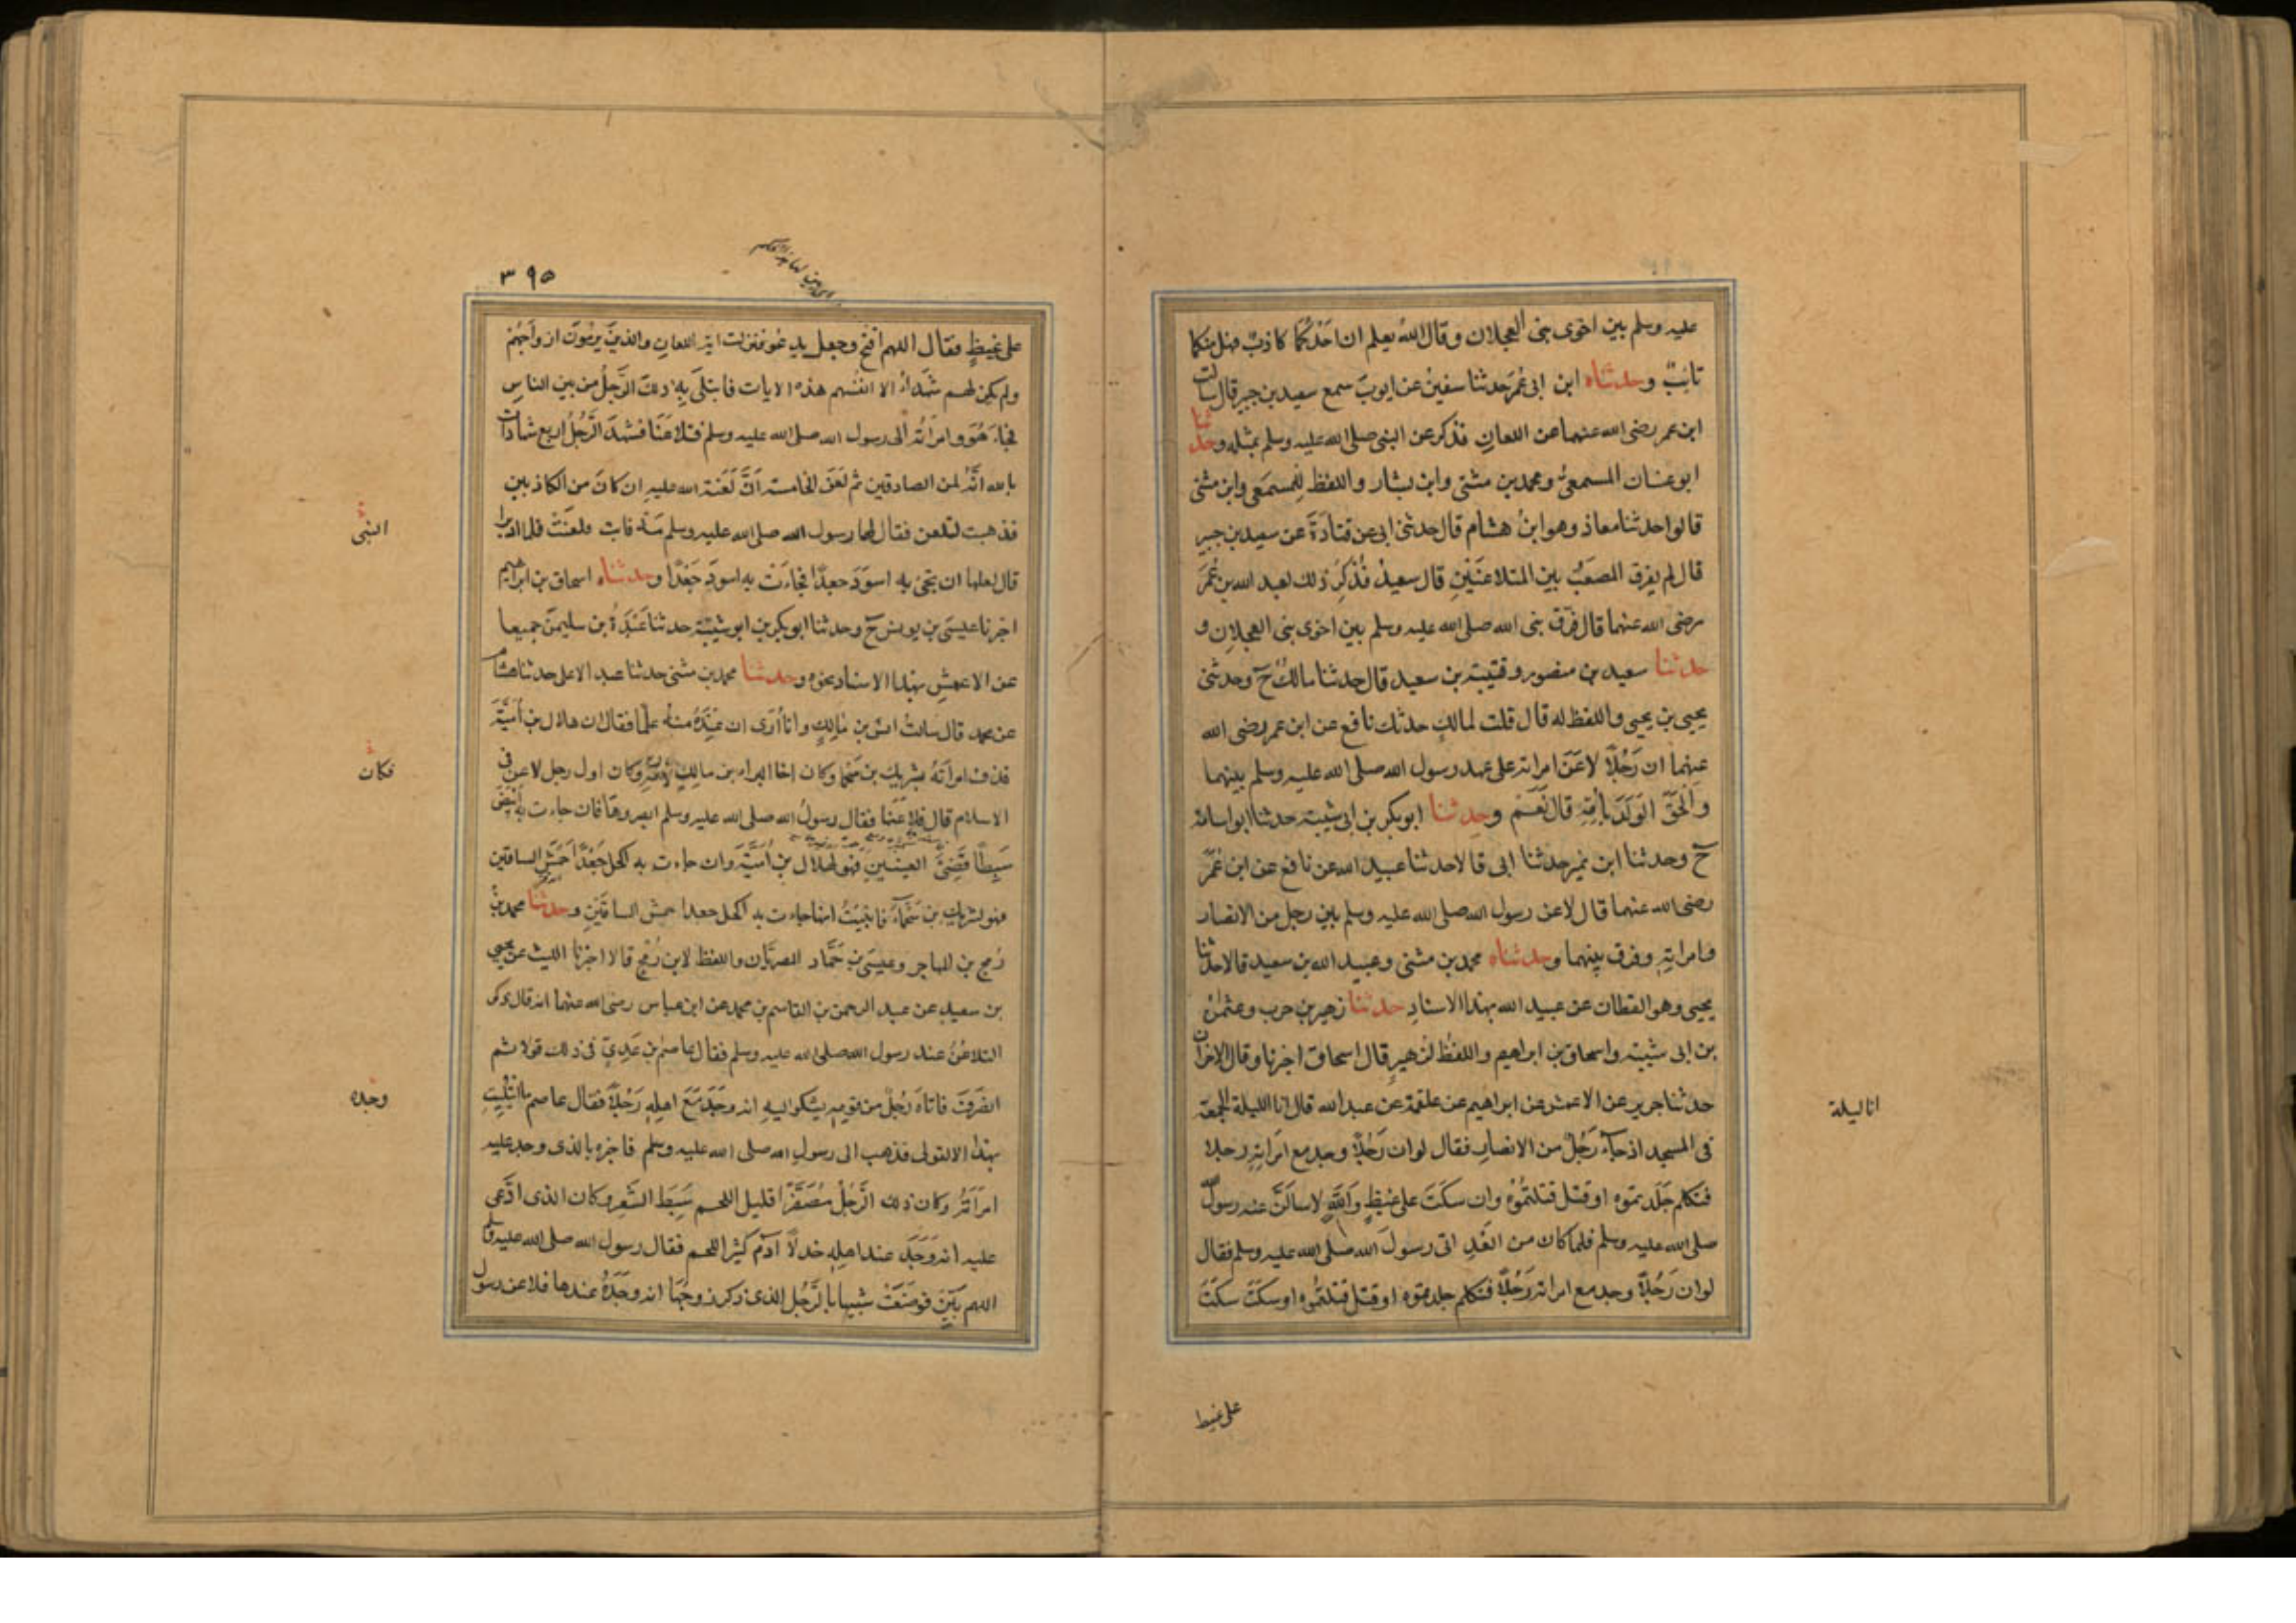 عليه وسلم بين اخوى بنى العجلان وقال الله يعلم ان احدكما كاذب فهل منكما
تائب وحدثناه ابن ابى عمر حدثنا سفين عن ايوب سمع سعيد بن جبير قال سالت
ابن عمر رضى الله عنهما عن اللعان فذكر عن النبى صلى الله عليه وسلم بمثله وحدثنا
ابو غسان المسمعى ومحمد بن مثنى وابن بشار واللفظ للمسمعى وابن مثنى
قالوا حدثنا معاذ وهو ابن هشام قال حدثنى ابى عن قتادة عن سعيد بن جبير
قال لم يفرق المصعب بين المتلاعنين قال سعيد فذكر ذلك لعبد الله بن عمر
رضى الله عنهما قال فرق نبى الله صلى الله عليه وسلم بين اخوى بنى العجلان و
حدثنا سعيد بن منصور وقتيبة بن سعيد قال حدثنا مالك ح وحدثنى
يحيى بن يحيى واللفظ له قال قلت لمالك حدثك نافع عن ابن عمر رضى الله
عنهما ان رجلا لاعن امراته على عهد رسول الله صلى الله عليه وسلم بينهما
والحق الولد بامه قال نعم وحدثنا ابو بكر بن ابى شيبة حدثنا ابو اسامة
ح وحدثنا ابن نمير حدثنا ابى قالا حدثنا عبيد الله عن نافع عن ابن عمر
رضى الله عنهما قال لاعن رسول الله صلى الله عليه وسلم بين رجل من الانصار
وامراته وفرق بينهما وحدثناه محمد بن مثنى وعبيد الله بن سعيد قالا حدثنا
يحيى وهو القطان عن عبيد الله بهذا الاسناد حدثنا زهير بن حرب وعثمان
بن ابى شيبة واسحاق بن ابراهيم واللفظ لزهير قال اسحاق اخبرنا وقال الاخران
حدثنا جرير عن الاعمش عن ابراهيم عن علقمة عن عبد الله قال انا الليلة الجمعة
انا ليلة
فى المسجد اذ جاء رجل من الانصار فقال لو ان رجلا وجد مع امراته رجلا
فتكلم جلدتموه او قتل قتلتموه وان سكت على غيظ والله لاسالن عنه رسول الله
صلى الله عليه وسلم فلما كان من الغد اتى رسول الله صلى الله عليه وسلم فقال
لو ان رجلا وجد مع امراته رجلا فتكلم جلدتموه او قتل قتلتموه او سكت سكت
على غيظ
٣٩٥
على غيظ فقال اللهم افتح وجعل يدعو فنزلت اية اللعان والذين يرمون ازواجهم
ولم يكن لهم شهداء الا انفسهم هذه الايات فابتلى به ذلك الرجل من بين الناس
فجاء هو وامراته الى رسول الله صلى الله عليه وسلم فتلاعنا فشهد الرجل اربع شهادات
بالله انه لمن الصادقين ثم لعن الخامسة ان لعنة الله عليه ان كان من الكاذبين
فذهبت لتلعن فقال لها رسول الله صلى الله عليه وسلم مه فابت فلعنت فلما ادبرا
النبى
قال لعلها ان تجئ به اسود جعدا فجاءت به اسود جعدا وحدثناه اسحاق بن ابراهيم
اخبرنا عيسى بن يونس ح وحدثنا ابو بكر بن ابو شيبة حدثنا عبدة بن سليمن جميعا
عن الاعمش بهذا الاسناد نحوه وحدثنا محمد بن مثنى حدثنا عبد الاعلى حدثنا هشام
عن محمد قال سالت انس بن مالك وانا ارى ان عنده منه علما فقال ان هلال بن امية
قذف امراته بشريك بن سحما وكان اخا البراء بن مالك لامه وكان اول رجل لاعن فى
فكان
الاسلام قال فلاعنها فقال رسول الله صلى الله عليه وسلم ابصروها فان جاءت به ابيض
سبطا قضئ العينين فهو لهلال بن امية وان جاءت به اكحل جعدا احمش الساقين
فهو لشريك بن سحماء فانبيت انها جاءت به اكحل جعدا حمش الساقين وحدثنا محمد بن
رمح بن المهاجر وعيسى بن حماد المصريان واللفظ لابن رمح قالا اخبرنا الليث عن يحيى
بن سعيد عن عبد الرحمن بن القاسم بن محمد عن ابن عباس رضى الله عنهما انه قال ذكر
التلاعن عند رسول الله صلى الله عليه وسلم فقال عاصم بن عدى فى ذلك قولا ثم
انصرف فاتاه رجل من قومه يشكو اليه انه وجد مع اهله رجلا فقال عاصم ما ابتليت
وجده
بهذا الا لقولى فذهب الى رسول الله صلى الله عليه وسلم فاخبره بالذى وجد عليه
امراته وكان ذلك الرجل مصفرا قليل اللحم سبط الشعر وكان الذى ادعى
عليه انه وجد عند اهله خدلا ادم كثير اللحم فقال رسول الله صلى الله عليه وسلم
اللهم بين فوضعت شبيها بالرجل الذى ذكر زوجها انه وجده عندها فلاعن رسول